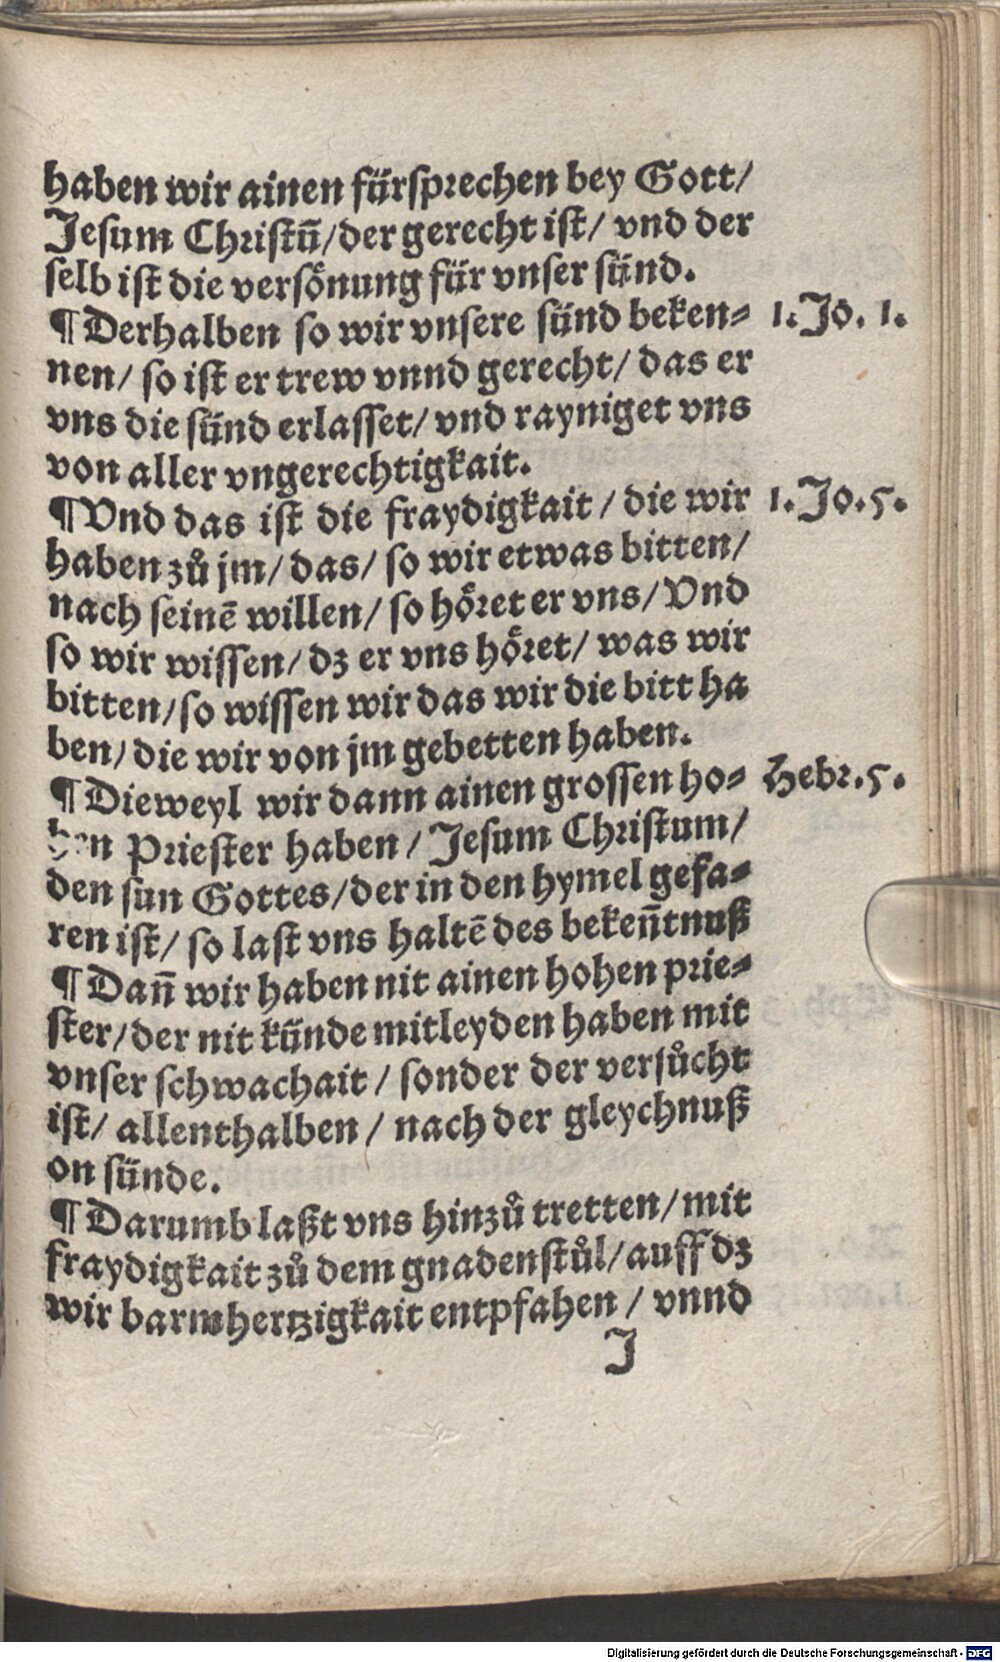 haben wir ainen fürſprechen bey Gott/
Jeſum Chriſtū/der gerecht iſt/ vnd der
ſelb iſt die verſönung für vnſer ſünd.
¶Derhalben ſo wir vnſere ſünd beken⸗ 1.Jo. 1.
nen/ ſo iſt er trew vnnd gerecht/ das er
vns die ſünd erlaſſet/ vnd rayniget vns
von aller vngerechtigkait.
¶Vnd das iſt die fraydigkait / die wir 1.Jo.5.
haben zů jm/ das/ ſo wir etwas bitten/
nach ſeinē willen/ ſo höꝛet er vns/ Vnd
ſo wir wiſſen/ dz er vns höꝛet/ was wir
bitten/ſo wiſſen wir das wir die bitt ha
ben/ die wir von jm gebetten haben.
¶Dieweyl wir dann ainen groſſen ho⸗ Hebꝛ.5.
hen Pꝛieſter haben / Jeſum Chꝛiſtum/
den ſun Gottes/der in den hymel gefa⸗
ren iſt/ ſo laſt vns haltē des bekeñtnuß
¶Dañ wir haben nit ainen hohen pꝛie⸗
ſter/der nit künde mitleyden haben mit
vnſer ſchwachait / ſonder der verſůcht
iſt/ allenthalben / nach der gleychnuß
on ſünde.
¶Darumb laßt vns hinzů tretten/mit
fraydigkait zů dem gnadenſtůl/auff dz
wir barmhertzigkait entpfahen / vnnd
J
Digitalisierung gefördert durch die Deutsche Forschungsgemeinschaft - DFG